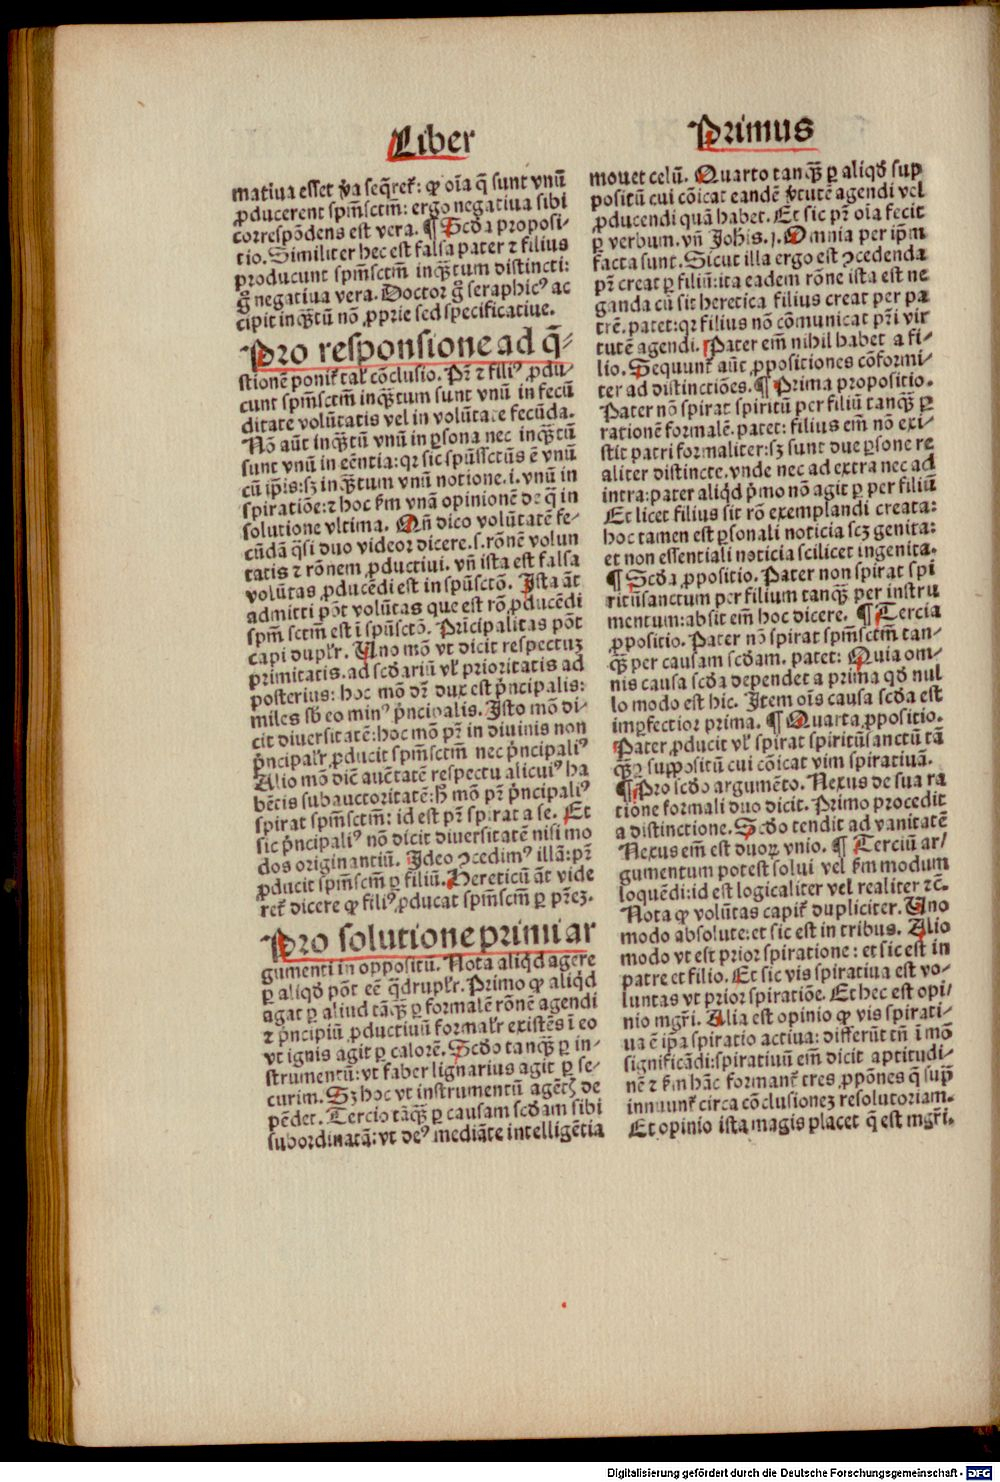 Liber
Primus
matiua esset ṽa seq̃ret᷑: ꝙ oĩa q̃ sunt vnũ
ꝓducerent spm̃sctm̃: ergo negatiua sibi
correspõdens est vera. ¶ Scđa proposi-
tio. Similiter hec est falsa pater ⁊ filius
producunt spm̃sctm̃ inqᷓtum distincti:
g̃ negatiua vera. Doctor g̃ seraphicꝰ ac
cipit inqᷓtũ nõ ꝓprie sed specificatiue.
Pro responsione ad q̃-
stionẽ ponit᷑ tal᷑ cõclusio. Pr̃ ⁊ filiꝰ ꝓdu-
cunt spm̃sctm̃ inqᷓtum sunt vnũ in fecũ
ditate volũtatis vel in volũtate fecũda.
Nõ aũt inqᷓtũ vnũ in ꝑsona nec inqᷓtũ
sunt vnũ in eẽntia: qꝛ sic spũssctũs ẽ vnũ
cũ ip̃is: sꝫ inqᷓtum vnũ notione .i. vnũ in
spiratiõe: ⁊ hoc ẜm vnã opinionẽ de q̃ in
solutione vltima. Qñ dico volũtatẽ fe-
cũdã q̃si duo videoꝛ dicere .s. rõnẽ volun
tatis ⁊ rõnem ꝓductiui. vñ ista est falsa
volũtas ꝓducẽdi est in spũsctõ. Ista ãt
admitti põt volũtas que est rõ ꝓducẽdi
spm̃ sctm̃ est ĩ spũsctõ. Prĩcipalitas põt
capi dupl᷑r. Uno mõ vt dicit respectuꝫ
primitatis. ad scđariũ vl᷑ prioritatis ad
posterius: hoc mõ dr̃ dux est p̃ncipalis:
miles sb̃ eo minꝰ p̃ncipalis. Isto mõ di-
cit diuersitatẽ: hoc mõ pr̃ in diuinis non
p̃ncipal᷑r ꝓducit spm̃sctm̃ nec p̃ncipaliꝰ
Alio mõ diẽ auẽtatẽ respectu alicuiꝰ ha
bẽtis subauctoritatẽ: h̃ mõ pr̃ p̃ncipaliꝰ
spirat spm̃sctm̃: id est pr̃ spirat a se. Et
sic p̃ncipaliꝰ nõ dicit diuersitatẽ nisi mo
dos originantiũ. Ideo ꝯcedimꝰ illã: pr̃
ꝓducit spm̃scm̃ ꝑ filiũ. Hereticũ ãt vide
ret᷑ dicere ꝙ filiꝰ ꝓducat spm̃scm̃ ꝑ pr̃eꝫ.
Pro solutione primi ar
gumenti in oppositũ. Nota aliq̃d agere
ꝑ aliqđ põt eẽ q̃drupl᷑r. Primo ꝙ aliq̃d
agat ꝑ aliud tãqᷓ ꝑ formalẽ rõnẽ agendi
⁊ p̃ncipiũ ꝓductiuũ formal᷑r existẽs ĩ eo
vt ignis agit ꝑ calorẽ. Scđo tanqᷓ ꝑ in-
strumentũ: vt faber lignarius agit ꝑ se-
curim. Sꝫ hoc vt instrumentũ agẽtꝭ de
pẽdet. Tercio tãqᷓ ꝑ causam scđam sibi
subordinatã: vt deꝰ mediãte intelligẽtia
mouet celũ. Quarto tanqᷓ ꝑ aliqđ sup
positũ cui cõicat eandẽ ṽtutẽ agendi vel
ꝓducendi quã habet. Et sic pr̃ oĩa fecit
ꝑ verbum. vñ Johis .j. Omnia per ip̃m
facta sunt. Sicut illa ergo est ꝯcedenda
pr̃ creat ꝑ filiũ: ita eadem rõne ista est ne
ganda cũ sit heretica filius creat per pa
trẽ. patet: qꝛ filius nõ cõmunicat pr̃i vir
tutẽ agendi. Pater em̃ nihil habet a fi-
lio. Sequunt᷑ aũt ꝓpositiones cõformi-
ter ad distinctiões. ¶ Prima propositio.
Pater nõ spirat spiritũ per filiũ tanqᷓ ꝑ
rationẽ formalẽ. patet: filius em̃ nõ exi-
stit patri formaliter: sꝫ sunt due ꝑsone re
aliter distincte. vnde nec ad extra nec ad
intra: pater aliq̃d p̃mo nõ agit ꝑ per filiũ
Et licet filius sit rõ exemplandi creata:
hoc tamen est ꝑsonali noticia scꝫ genita:
et non essentiali noticia scilicet ingenita.
¶ Scđa ꝓpositio. Pater non spirat spi
ritũsanctum per filium tanqᷓ per instru
mentum: absit em̃ hoc dicere. ¶ Tercia
ꝓpositio. Pater nõ spirat spm̃sctm̃ tan-
qᷓ per causam scđam. patet: Quia om-
nis causa scđa dependet a prima qđ nul
lo modo est hic. Item oĩs causa scđa est
imꝑfectior prima. ¶ Quarta ꝓpositio.
Pater ꝓducit vl᷑ spirat spiritũsanctũ tã
qᷓ ꝑ suppositũ cui cõicat vim spiratiuã.
¶ Pro scđo argumẽto. Nexus de sua ra
tione formali duo dicit. Primo procedit
a distinctione. Scđo tendit ad vanitatẽ
Nexus em̃ est duoꝝ vnio. ¶ Terciũ ar-
gumentum potest solui vel ẜm modum
loquẽdi: id est logicaliter vel realiter ⁊c̃.
Nota ꝙ volũtas capit᷑ dupliciter. Uno
modo absolute: et sic est in tribus. Alio
modo vt est prior spiratione: et sic est in
patre et filio. Et sic vis spiratiua est vo-
luntas vt prior spiratiõe. Et hec est opi-
nio mgr̃i. Alia est opinio ꝙ vis spirati-
ua ẽ ip̃a spiratio actiua: differũt tñ ĩ mõ
significãdi: spiratiuũ em̃ dicit aptitudi-
nẽ ⁊ ẜm hãc formant᷑ tres ꝓpõnes q̃ supͥ
innuunt᷑ circa cõclusionez resolutoriam.
Et opinio ista magis placet q̃ est mgr̃i.
Digitalisierung gefördert durch die Deutsche Forschungsgemeinschaft - DFG